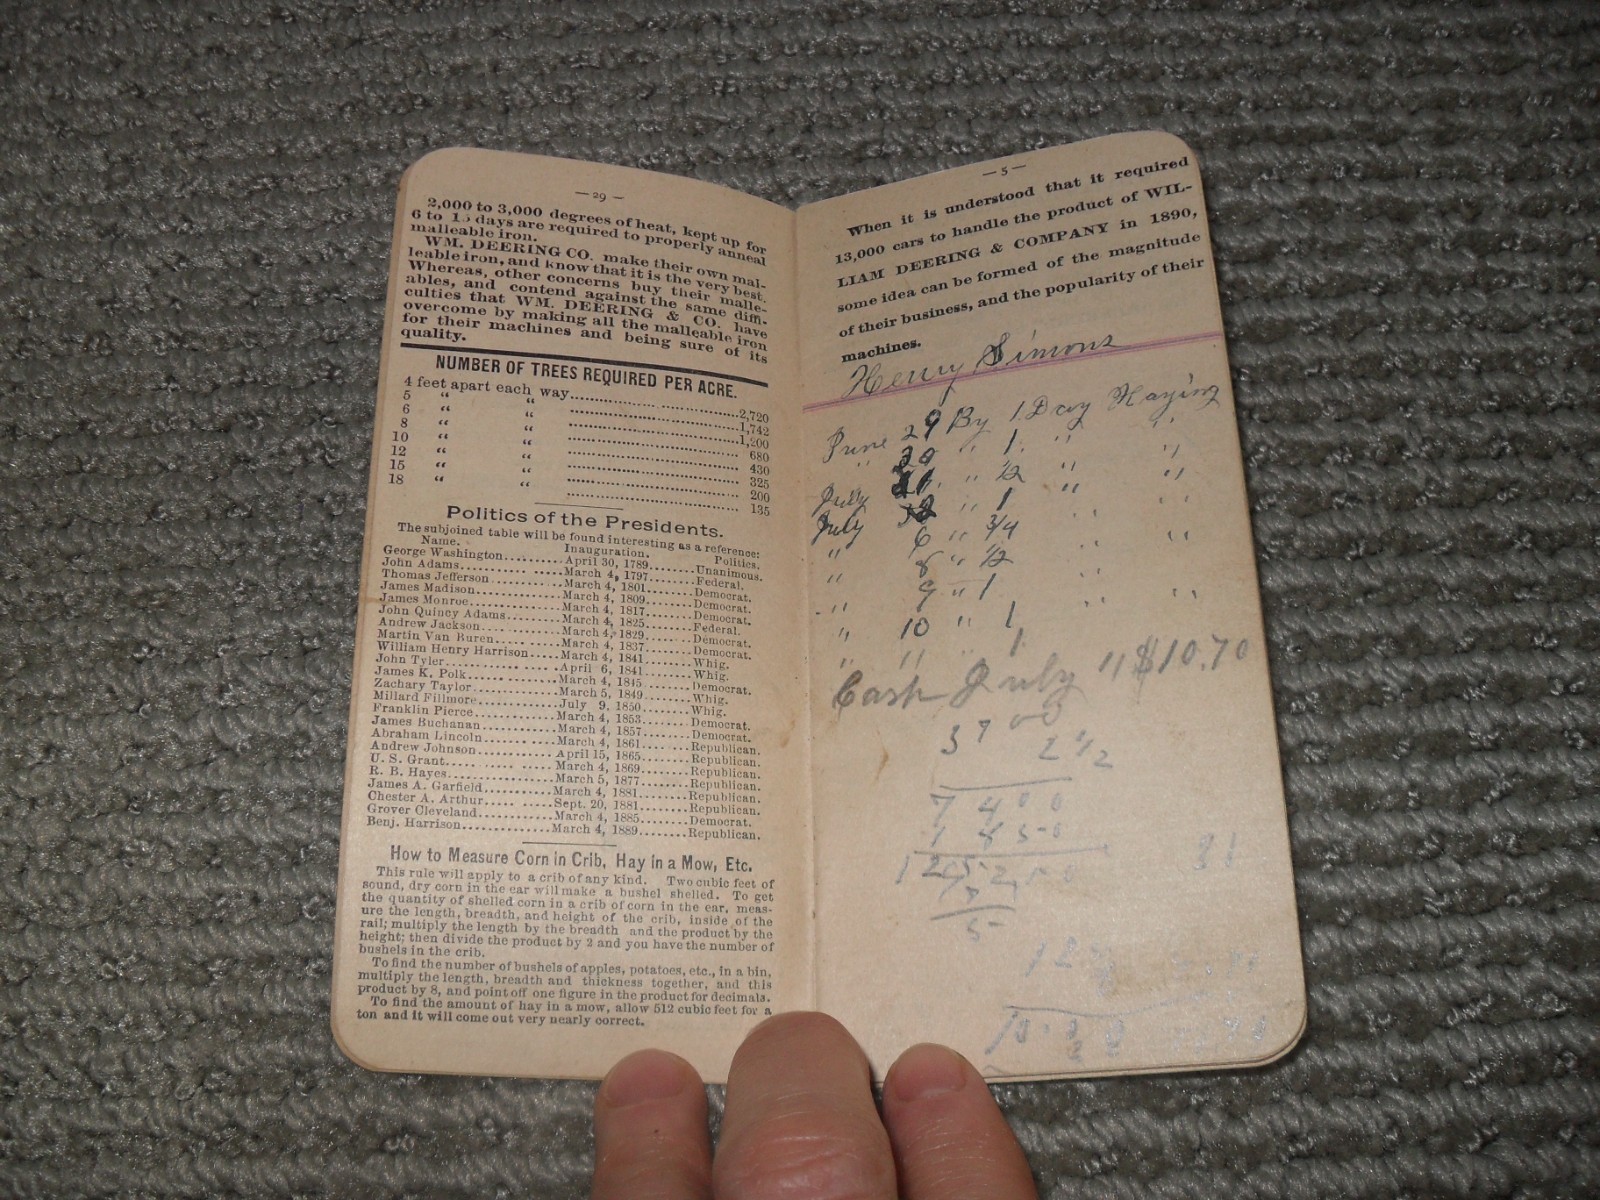 — 29 —
2,000 to 3,000 degrees of heat, kept up for
6 to 15 days are required to properly anneal
malleable iron.
WM. DEERING CO. make their own mal-
leable iron, and know that it is the very best.
Whereas, other concerns buy their malle-
ables, and contend against the same diffi-
culties that WM. DEERING & CO. have
overcome by making all the malleable iron
for their machines and being sure of its
quality.
NUMBER OF TREES REQUIRED PER ACRE.
4 feet apart each way 2,720
5 " " 1,742
6 " " 1,200
8 " " 680
10 " " 430
12 " " 325
15 " " 200
18 " " 135
Politics of the Presidents.
The subjoined table will be found interesting as a reference:
Name. Inauguration. Politics.
George Washington April 30, 1789 Unanimous.
John Adams March 4, 1797 Federal.
Thomas Jefferson March 4, 1801 Democrat.
James Madison March 4, 1809 Democrat.
James Monroe March 4, 1817 Democrat.
John Quincy Adams March 4, 1825 Federal.
Andrew Jackson March 4, 1829 Democrat.
Martin Van Buren March 4, 1837 Democrat.
William Henry Harrison March 4, 1841 Whig.
John Tyler April 6, 1841 Whig.
James K. Polk March 4, 1845 Democrat.
Zachary Taylor March 5, 1849 Whig.
Millard Fillmore July 9, 1850 Whig.
Franklin Pierce March 4, 1853 Democrat.
James Buchanan March 4, 1857 Democrat.
Abraham Lincoln March 4, 1861 Republican.
Andrew Johnson April 15, 1865 Republican.
U. S. Grant March 4, 1869 Republican.
R. B. Hayes March 5, 1877 Republican.
James A. Garfield March 4, 1881 Republican.
Chester A. Arthur Sept. 20, 1881 Republican.
Grover Cleveland March 4, 1885 Democrat.
Benj. Harrison March 4, 1889 Republican.
How to Measure Corn in Crib, Hay in a Mow, Etc.
This rule will apply to a crib of any kind. Two cubic feet of
sound, dry corn in the ear will make a bushel shelled. To get
the quantity of shelled corn in a crib of corn in the ear, meas-
ure the length, breadth, and height of the crib, inside of the
rail; multiply the length by the breadth and the product by the
height; then divide the product by 2 and you have the number of
bushels in the crib.
To find the number of bushels of apples, potatoes, etc., in a bin,
multiply the length, breadth and thickness together, and this
product by 8, and point off one figure in the product for decimals.
To find the amount of hay in a mow, allow 512 cubic feet for a
ton and it will come out very nearly correct.
— 5 —
When it is understood that it required
13,000 cars to handle the product of WIL-
LIAM DEERING & COMPANY in 1890,
some idea can be formed of the magnitude
of their business, and the popularity of their
machines.
Henry Simons
June 29 By 1 Day Haying
" 30 " 1 " "
July " 1/2 " "
July 2 " 1 " "
" 6 " 3/4 " "
" 8 " 1/2 " "
" 9 " 1 "
" 10 " 1 " "
" 11 " 1
Cash July 11 $10.70
3700
2 1/2
7400
1850
31